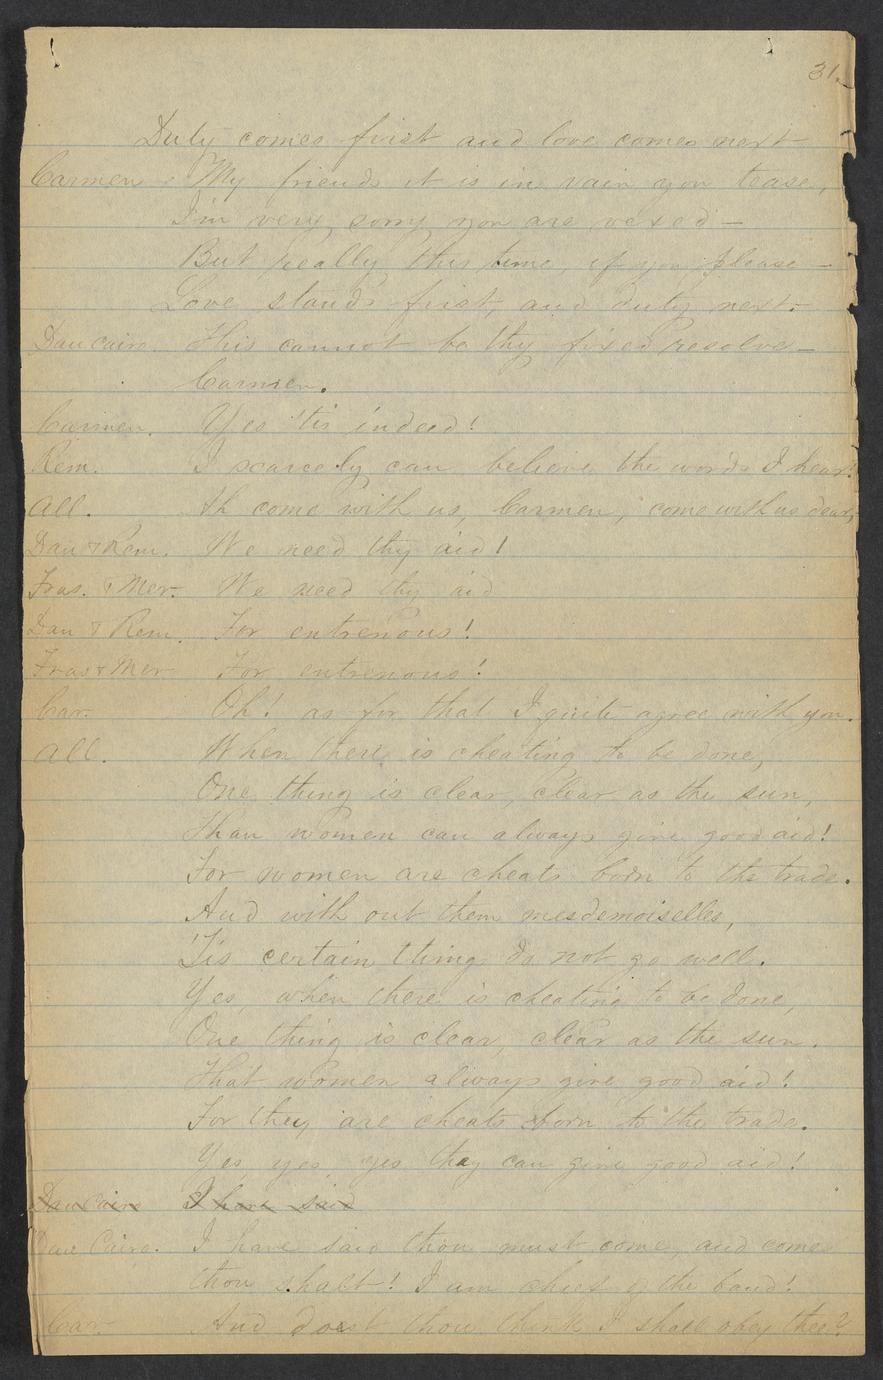 31.
Duty comes first and love comes next
Carmen. My friends it is in vain you tease,
I'm very sorry you are vexed —
But really this time, if you please —
Love stands first, and duty next.
Dancairo. This cannot be thy fixed resolve —
Carmen.
Carmen. Yes 'tis indeed!
Rem. I scarcely can believe the words I hear!
All. Ah come with us, Carmen, come with us dear,
Dan & Rem. We need thy aid!
Fras. & Mer. We need thy aid
Dan & Rem. For entrenous!
Fras & Mer For entrenous!
Car. Oh! as for that I quite agree with you.
All. When there is cheating to be done,
One thing is clear, clear as the sun,
Than women can always give good aid!
For women are cheats born to the trade.
And with out them mesdemoiselles,
'Tis certain thing do not go well.
Yes, when there is cheating to be done,
One thing is clear, clear as the sun.
That women always give good aid!
For they are cheats born to the trade.
Yes, yes, yes they can give good aid!
Dancairo I have said
Dan Cairo. I have said thou must come, and come
thou shalt! I am chief of the band!
Car. And doest thou think I shall obey thee?